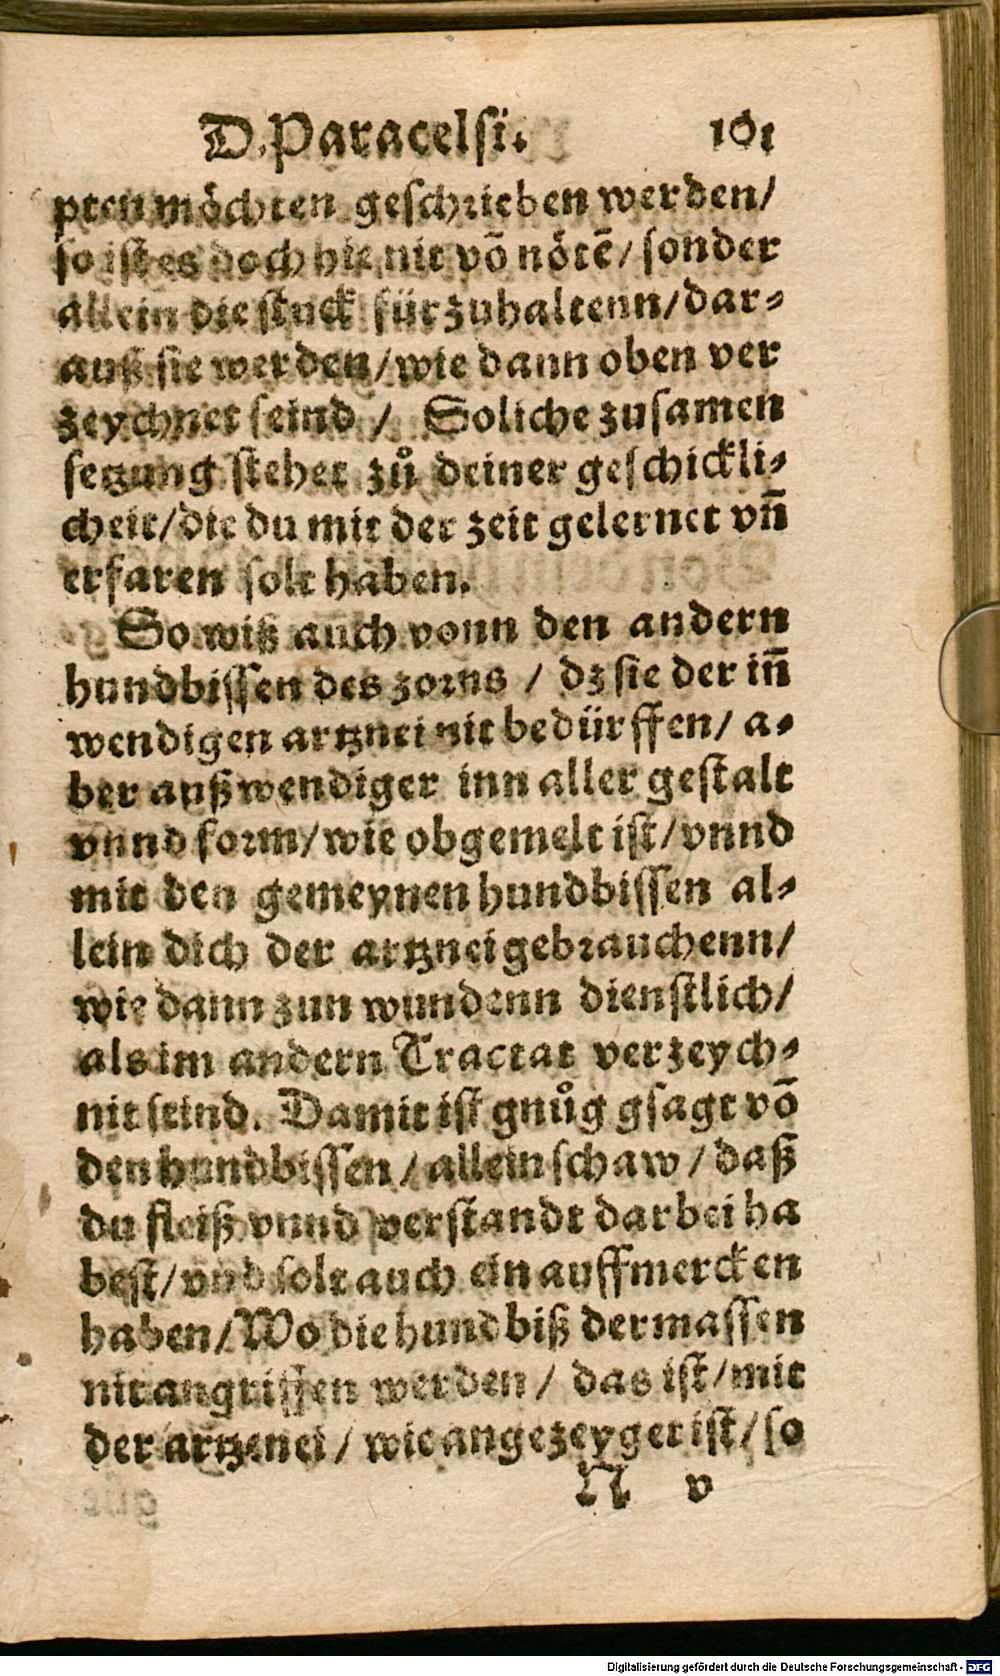 D. Paracelsi. 101
pten möchten geschrieben werden/
so ist es doch hie nit võ nötẽ/ sonder
allein die stuck für zuhaltenn/ dar-
auß sie werden/ wie dann oben ver
zeychnet seind / Soliche zusamen
setzung stehet zů deiner geschickli-
cheit/ die du mit der zeit gelernet vñ
erfaren solt haben.
So wiß auch vonn den andern
hundbissen des zorns / dz sie der iñ
wendigen artznei nit bedürffen/ a-
ber außwendiger inn aller gestalt
vnnd form/ wie obgemelt ist/ vnnd
mit den gemeynen hundbissen al-
lein dich der artznei gebrauchenn/
wie dann zun wundenn dienstlich/
als im andern Tractat verzeych-
nit seind. Damit ist gnůg gsagt võ
den hundbissen / allein schaw / daß
du fleiß vnnd verstandt darbei ha
best/ vnd solt auch ein auffmercken
haben/ Wo die hundbiß dermassen
nit angriffen werden / das ist/ mit
der artzenei / wie angezeyget ist/ so
N v
Digitalisierung gefördert durch die Deutsche Forschungsgemeinschaft - DFG